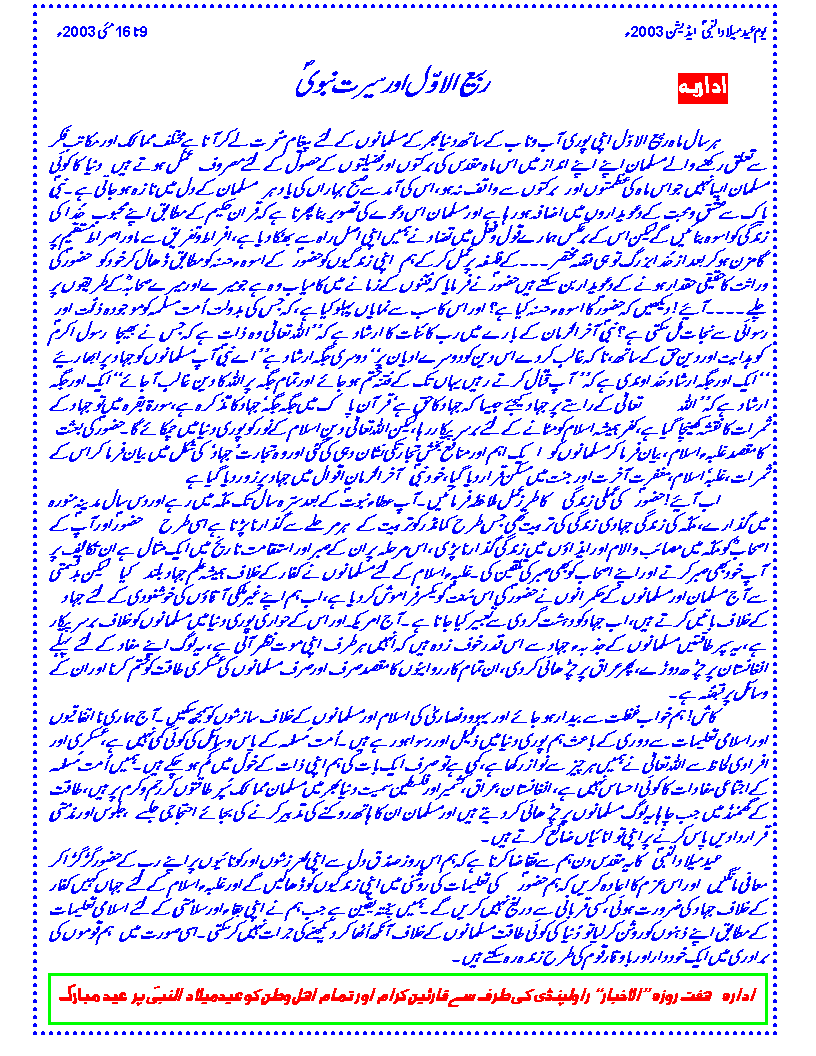 یوم عید میلاد النبیؐ ایڈیشن 2003ء
9 تا 16 مئی 2003ء
اداریہ
ربیع الاوّل اور سیرت نبویؐ
ہر سال ماہ ربیع الاوّل اپنی پوری آب و تاب کے ساتھ دنیا بھر کے مسلمانوں کے لئے پیغام مسرت لے کر آتا ہے مختلف ممالک اور مکاتب فکر
سے تعلق رکھنے والے مسلمان اپنے اپنے انداز میں اس ماہ مقدس کی برکتوں اور فضیلتوں کے حصول کے لئے مصروف عمل ہوتے ہیں دنیا کا کوئی
مسلمان ایسا نہیں جو اس ماہ کی عظمتوں اور برکتوں سے واقف نہ ہو، اس کی آمد سے صبح بہاراں کی یاد ہر مسلمان کے دل میں تازہ ہو جاتی ہے۔ نبی
پاک سے عشق و محبت کے دعویداروں میں اضافہ ہو رہا ہے اور مسلمان اس دعوے کی تصویر بنا پھرتا ہے کہ قرآن حکیم کے مطابق اپنے محبوب خدا کی
زندگی کو اسوہ بنائیں گے لیکن اس کے برعکس ہمارے قول و فعل میں تضاد نے ہمیں اپنی اصل راہ سے بھٹکا دیا ہے، افراط و تفریق سے ماور اصراط مستقیم پر
گامزن ہو کر بعد از خدا بزرگ توئی قصہ مختصر۔۔۔۔ کے فلسفہ پر عمل کر کے ہم اپنی زندگیوں کو حضورؐ کے اسوہ حسنہ کو مطابق ڈھال کر خود کو حضورؐ کی
وراثت کا حقیقی حقدار ہونے کے دعویدار بن سکتے ہیں حضورؐ نے فرمایا کہ فتنوں کے زمانے میں کامیاب وہ ہے جو میرے اور میرے صحابہؓ کے طریقوں پر
چلے۔۔۔۔ آئیے! دیکھیں کہ حضورؐ کا اسوہ حسنہ کیا ہے؟ اور اس کا سب سے نمایاں پہلو کیا ہے، کہ جس کی بدولت اُمت مسلمہ کو موجودہ ذلت اور
رسوائی سے نجات مل سکتی ہے؟ نبی آخر الزمان کے بارے میں رب کائنات کا ارشاد ہے کہ ’’اللہ تعالیٰ وہ ذات ہے کہ جس نے بھیجا رسول اکرمؐ
کو ہدایت اور دین حق کے ساتھ، تا کہ غالب کر دے اس دین کو دوسرے ادیان پر‘‘ دوسری جگہ ارشاد ہے ’’اے نبی آپ مسلمانوں کو جہاد پر ابھاریئے
‘‘ ایک اور جگہ ارشاد خداوندی ہے کہ ’’آپ قتال کرتے رہیں یہاں تک کے فتنہ ختم ہو جائے اور تمام جگہ پر اللہ کا دین غالب آ جائے‘‘ ایک اور جگہ
ارشاد ہے کہ ’’اللہ تعالیٰ کے راستے پر جہاد کیجئے جیسا کہ جہاد کا حق ہے‘ قرآن پاک میں جگہ جگہ جہاد کا تذکرہ ہے، سورۃ بقرہ میں تو جہاد کے
ثمرات کا نقشہ کھینچا گیا ہے، کفر ہمیشہ اسلام کو مٹانے کے لئے برسر پیکار رہا، لیکن اللہ تعالیٰ دین اسلام کے نور کو پوری دنیا میں چمکائے گا۔ حضورؐ کی بعثت
کا مقصد غلبہ اسلام، بیان فرما کر مسلمانوں کو ایک اہم اور منافع بخش تجارت کی نشان دہی کی گئی اور وہ تجارت جہاد کی شکل میں بیان فرما کر اس کے
ثمرات، غلبہ اسلام، مغفرت آخرت اور جنت میں مسکن قرار دیا گیا، خود نبی آخر الزمان اقوال میں جہاد پر زور دیا گیا ہے
اب آئیے! حضورؐ کی عملی زندگی کا طرز عمل ملاحظہ فرمائیں۔ آپ عطاء نبوت کے بعد تیرہ سال تک مکہ میں رہے اور دس سال مدینہ منورہ
میں گذارے، مکہ کی زندگی جہادی زندگی کی تربیت تھی، جس طرح کمانڈر کو تربیت کے ہر مرحلے سے گذارنا پڑتا ہے اسی طرح حضورؐ اور آپ کے
اصحابؓ کو مکہ میں مصائب و الام اور ایذاؤں میں زندگی گذارنا پڑی، اس مرحلہ پر ان کے صبر اور استقامت تاریخ میں ایک مثال ہے ان تکالیف پر
آپ خود بھی صبر کرتے اور اپنے اصحاب کو بھی صبر کی تلقین کی۔ غلبہ اسلام کے لئے مسلمانوں نے کفار کے خلاف ہمیشہ علم جہاد بلند کیا لیکن بد قسمتی
سے آج مسلمان اور مسلمانوں کے حکمرانوں نے حضورؐ کی اس سنت کو یکسر فراموش کر دیا ہے، اب ہم اپنے غیر ملکی آقاؤں کی خوشنودی کے لئے جہاد
کے خلاف باتیں کرتے ہیں، اب جہاد کو دہشت گردی سے تعبیر کیا جاتا ہے۔ آج امریکہ اور اس کے حواری پوری دنیا میں مسلمانوں کو خلاف برسر پیکار
ہے، یہ سپر طاقتیں مسلمانوں کے جذبہ جہاد سے اس قدر خوف زدہ ہیں کہ انہیں ہر طرف اپنی موت نظر آتی ہے، یہ لوگ اپنے مفاد کے لئے پہلے
افغانستان پر چڑھ دوڑے، پھر عراق پر چڑھائی کر دی، ان تمام کارروایوں کا مقصد صرف اور صرف مسلمانوں کی عسکری طاقت کو ختم کرنا اور ان کے
وسائل پر قبضہ ہے۔
کاش! ہم خواب غفلت سے بیدار ہو جائے اور یہود و نصاریٰ کی اسلام اور مسلمانوں کے خلاف سازشوں کو سمجھ سکیں۔ آج ہماری نا اتفاقیوں
اور اسلامی تعلیمات سے دوری کے باعث ہم پوری دنیا میں ذلیل اور رسوا ہو رہے ہیں۔ اُمت مسلمہ کے پاس وسائل کی کوئی کمی نہیں ہے، عسکری اور
افرادی لحاظ سے اللہ تعالیٰ نے ہمیں ہر چیز سے نواز رکھا ہے، کمی ہے تو صرف ایک بات کی ہم اپنی ذات کے خول میں گم ہو چکے ہیں۔ ہمیں اُمت مسلمہ
کے اجتماعی مفادات کا کوئی احساس نہیں ہے، افغانستان، عراق، کشمیر اور فلسطین سمیت دنیا بھر میں مسلمان ممالک سپر طاقتوں کے رحم و کرم پر ہیں، طاقت
کے گھمنڈ میں جب چاہا یہ لوگ مسلمانوں پر چڑھائی کر دیتے ہیں اور مسلمان ان کا ہاتھ روکنے کی تدبیر کرنے کی بجائے احتجاجی جلسے، جلوس اور مذمتی
قراردادیں پاس کرنے پر اپنی توانائیاں ضائع کرتے ہیں۔
عید میلاد النبیؐ کا یہ مقدس دن ہم سے تقاضا کرتا ہے کہ ہم اس روز صدق دل سے اپنی لغزشوں اور کوتاہیوں پر اپنے رب کے حضور گڑگڑا کر
معافی مانگیں اور اس عزم کا اعادہ کریں کہ ہم حضورؐ کی تعلیمات کی روشنی میں اپنی زندگیوں کو ڈھالیں گے اور غلبہ اسلام کے لئے جہاں کہیں کفار
کے خلاف جہاد کی ضرورت ہوئی، کسی قربانی سے دریغ نہیں کریں گے۔ ہمیں پختہ یقین ہے جب ہم نے اپنی بقاء اور سلامتی کے لئے اسلامی تعلیمات
کے مطابق اپنے ذہنوں کو روشن کر لیا تو دُنیا کی کوئی طاقت مسلمانوں کے خلاف آنکھ اُٹھا کر دیکھنے کی جرات نہیں کر سکتی۔ اسی صورت میں ہم قوموں کی
برادری میں ایک خود دار اور باوقار قوم کی طرح زندہ رہ سکتے ہیں۔
ادارہ ہفت روزہ ’’الاخبار‘‘ راولپنڈی کی طرف سے قارئین کرام اور تمام اہل وطن کو عید میلاد النبیؐ پر عید مبارک